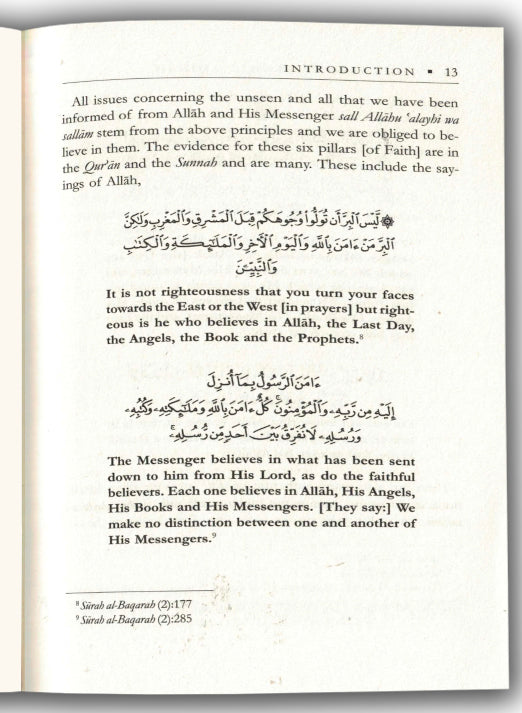 INTRODUCTION ▪ 13
All issues concerning the unseen and all that we have been
informed of from Allāh and His Messenger sall Allāhu ‘alayhi wa
sallām stem from the above principles and we are obliged to be-
lieve in them. The evidence for these six pillars [of Faith] are in
the Qur’ān and the Sunnah and are many. These include the say-
ings of Allāh,
۞ لَّيْسَ ٱلْبِرَّ أَن تُوَلُّوا۟ وُجُوهَكُمْ قِبَلَ ٱلْمَشْرِقِ وَٱلْمَغْرِبِ وَلَٰكِنَّ
ٱلْبِرَّ مَنْ ءَامَنَ بِٱللَّهِ وَٱلْيَوْمِ ٱلْءَاخِرِ وَٱلْمَلَٰٓئِكَةِ وَٱلْكِتَٰبِ
وَٱلنَّبِيِّـۧنَ
It is not righteousness that you turn your faces
towards the East or the West [in prayers] but right-
eous is he who believes in Allāh, the Last Day,
the Angels, the Book and the Prophets.⁸
ءَامَنَ ٱلرَّسُولُ بِمَآ أُنزِلَ
إِلَيْهِ مِن رَّبِّهِۦ وَٱلْمُؤْمِنُونَ ۚ كُلٌّ ءَامَنَ بِٱللَّهِ وَمَلَٰٓئِكَتِهِۦ وَكُتُبِهِۦ
وَرُسُلِهِۦ لَا نُفَرِّقُ بَيْنَ أَحَدٍ مِّن رُّسُلِهِۦ ۚ
The Messenger believes in what has been sent
down to him from His Lord, as do the faithful
believers. Each one believes in Allāh, His Angels,
His Books and His Messengers. [They say:] We
make no distinction between one and another of
His Messengers.⁹
⁸ Sūrah al-Baqarah (2):177
⁹ Sūrah al-Baqarah (2):285